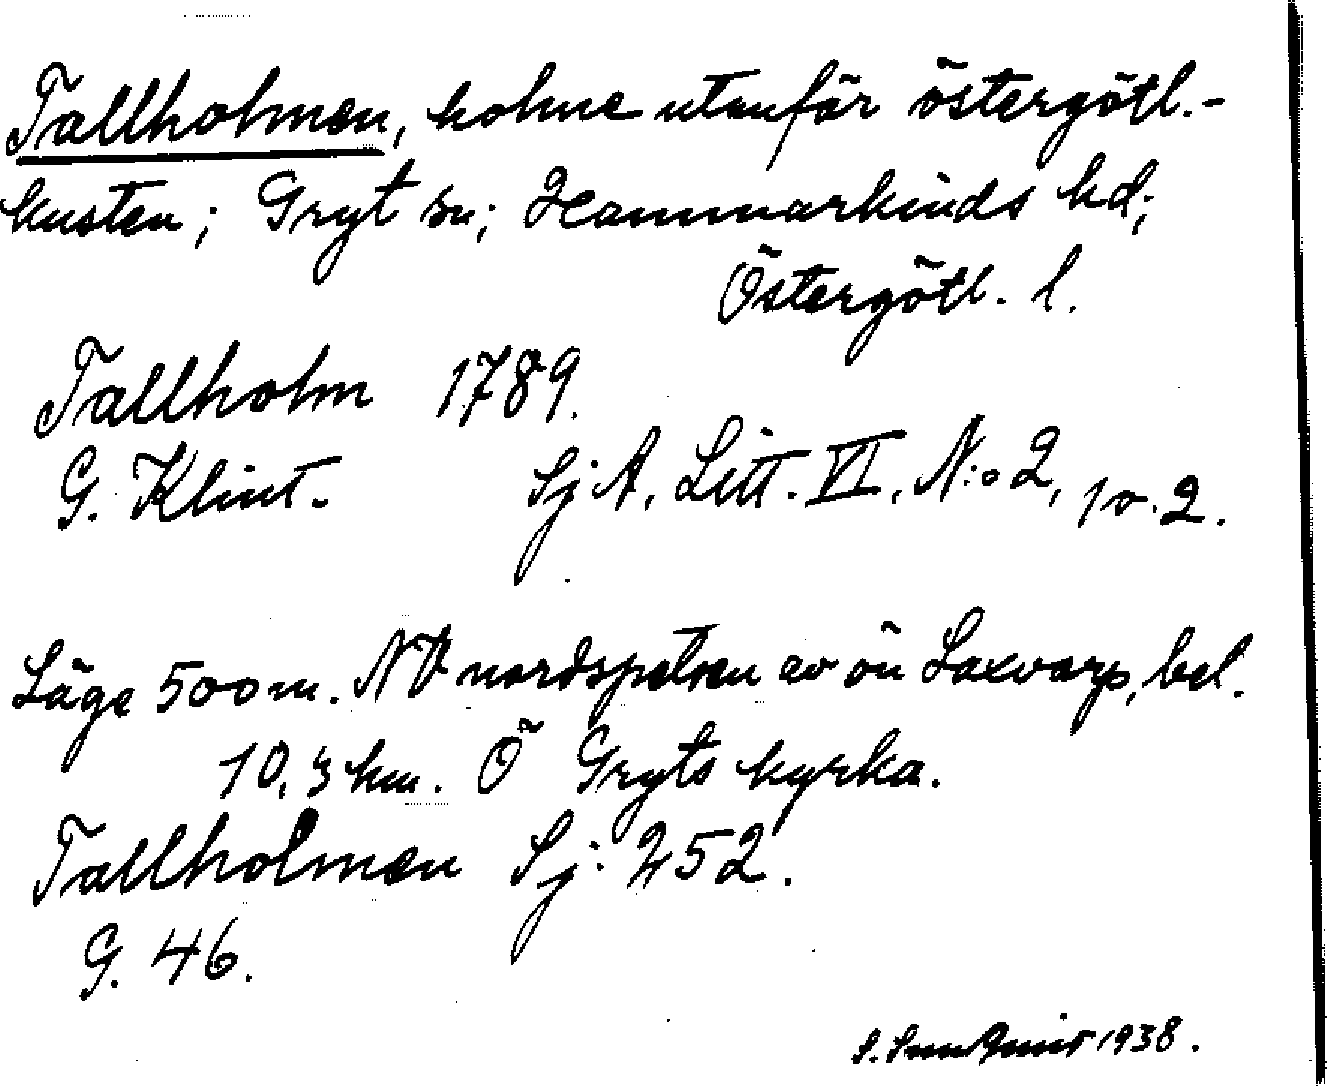 Tallholmen, holme utanför östergötl.-
kusten; Gryt sn; Hammarkinds hd;
Östergötl. l.
Tallholm 1789.
G. Klint. SjA, Litt. VI, N:o 2, 1 o. 2.
Läge 500 m. NV nordspetsen av ön Laxvarp, bel.
10,3 km. Ö Gryts kyrka.
Tallholmen Sj: 252.
G. 46.
S. 1938.